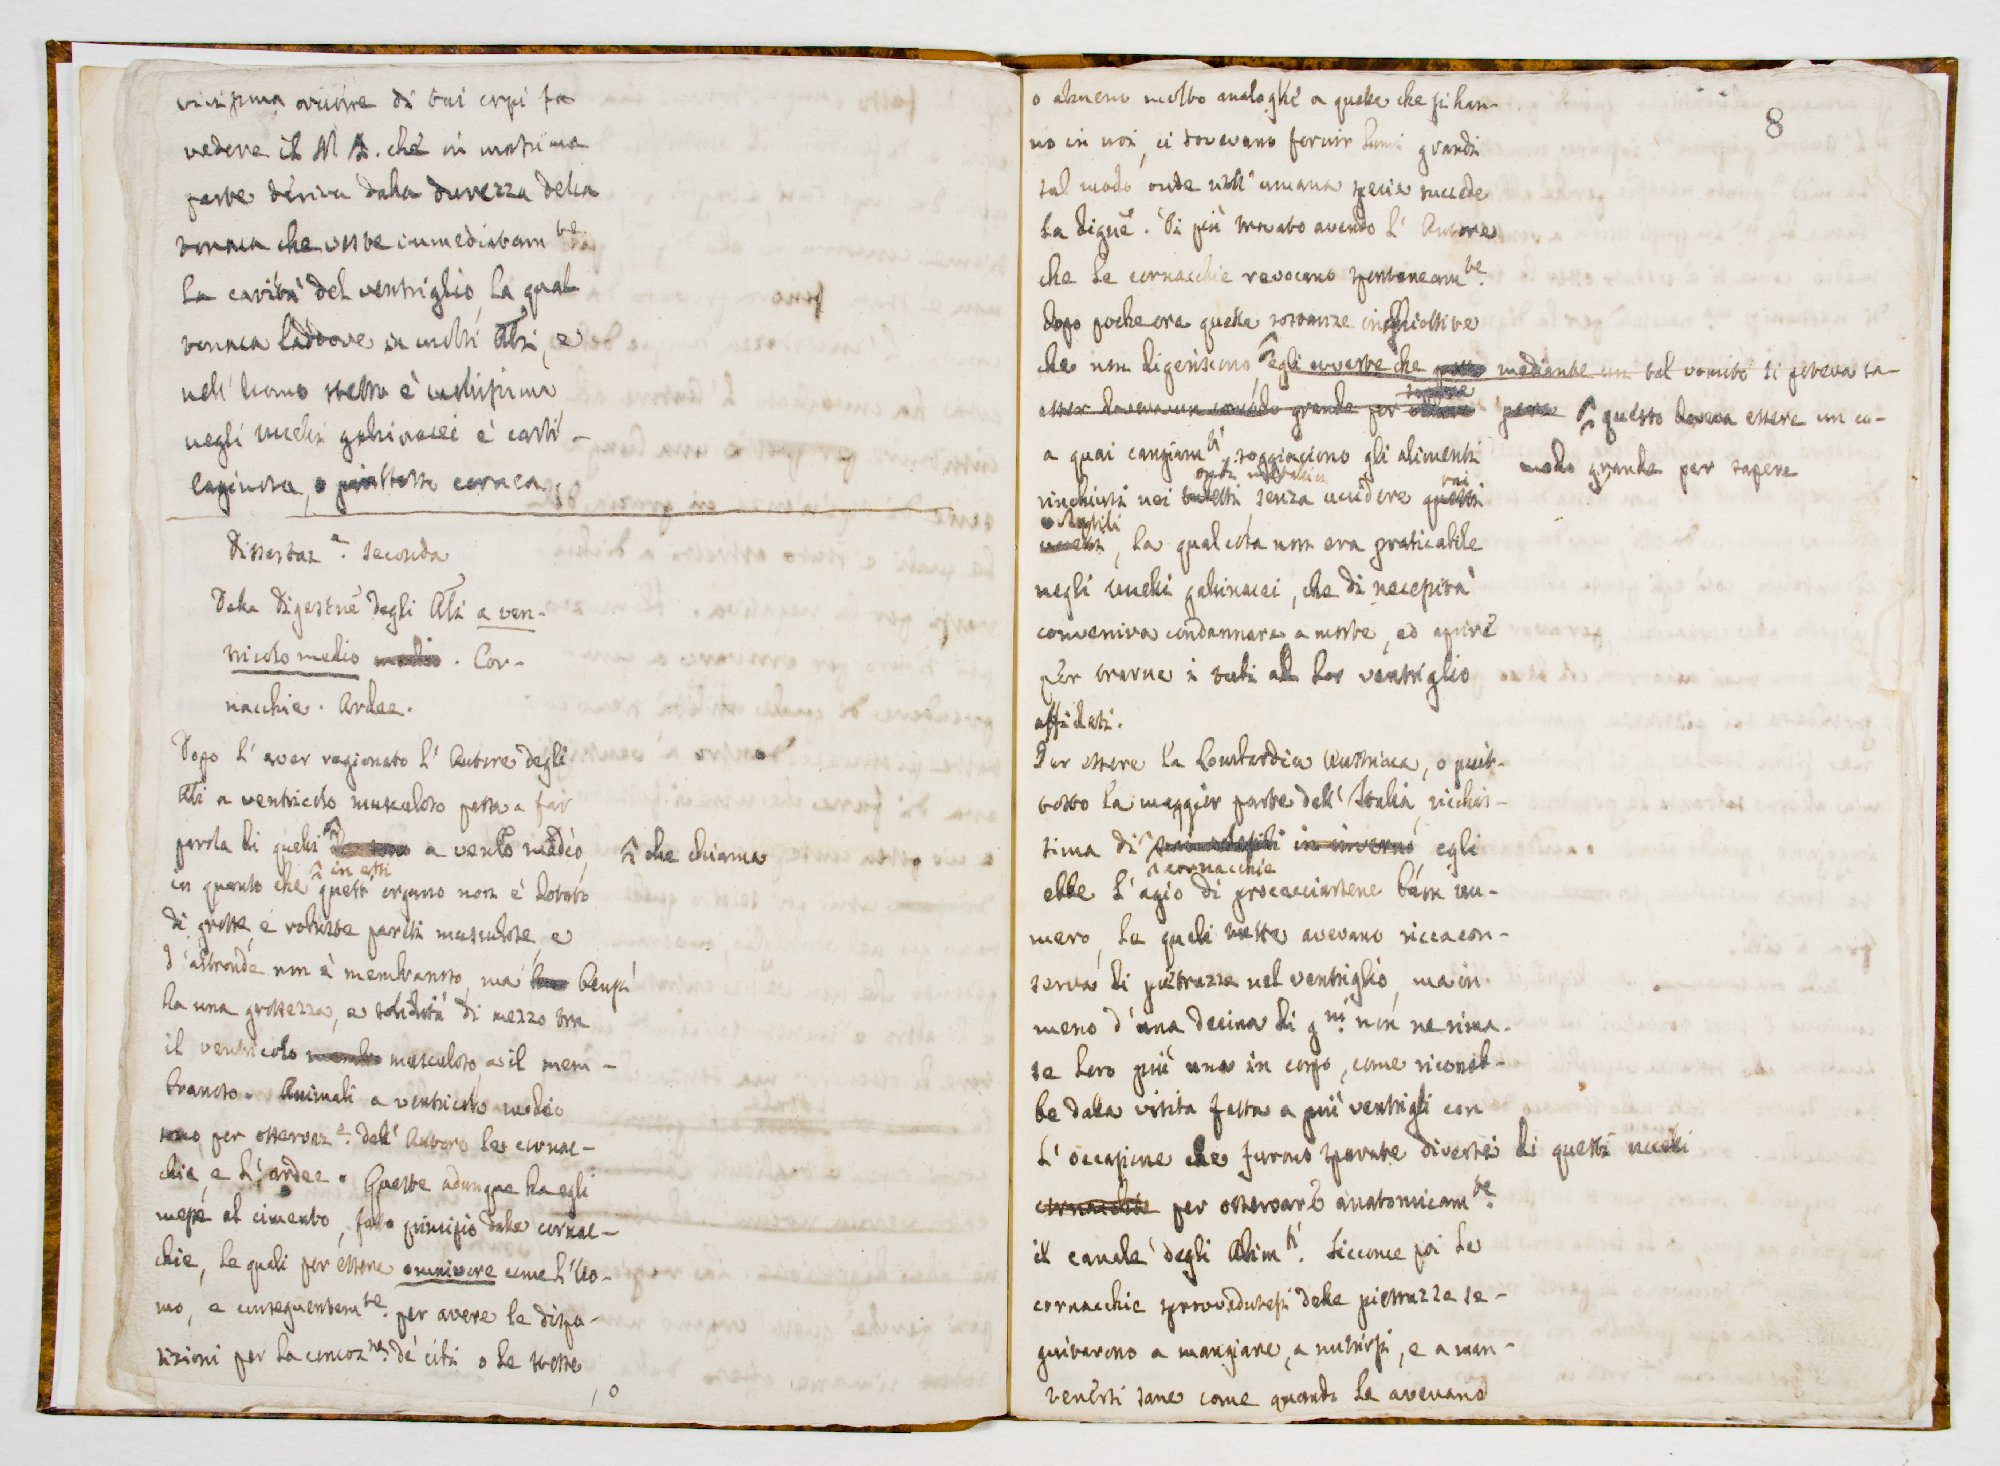 vivissima azione di tai corpi fa
vedere il N. A. che in massima
parte deriva dalla durezza della
tonaca che veste immediatam.te
la cavità del ventriglio, la qual
tonaca laddove in molti Ali, e
nell' Uomo stesso è mollissima
negli uccelli gallinacei è carti-
laginosa, o piuttosto cornea.
Dissertaz.e seconda
Della Digestne degli Ali a ven-
tricolo medio medio. Cor-
nacchie. Ardee.
Dopo l' aver ragionato l' Autore degli
Ali a ventricolo muscoloso passa a far
parola di quelli a ventlo medio, che chiama
in quanto che in essi quest' organo non è dotato
di grosse, e robuste pareti muscolose, e
d' altronde non è membranoso, ma bensì
ha una grossezza, e solidità di mezzo tra
il ventricolo muscoloso, e il mem-
branoso. Animali a ventricolo medio
sono per osservaz.e dell' Autore le cornac-
chie, e l' ardee. Queste adunque ha egli
messe al cimento, fatto principio dalle cornac-
chie, le quali per essere onnivore come l' Uo-
mo, e conseguentem.te per avere le dispo-
sizioni per la concoz.ne de' cibi o le stesse
, o
8
o almeno molto analoghe a quelle che si han-
no in noi, ci dovevano fornir lumi grandi
sul modo onde nell' umana specie succede
la digne. Di più trovato avendo l' Autore
che le cornacchie revocano spontaneam.te
dopo poche ore quelle sostanze inghiottite
che non digeriscono, egli avverte che mediante un tal vomito si poteva sa-
esser doveva un comodo grande per sapere pere questo doveva essere un co-
a quai cangiam.ti soggiacciono gli alimenti modo grande per sapere
rinchiusi nei tubetti senza uccidere questi
uccelli, la qual cosa non era praticabile
negli uccelli gallinacei, che di necessità
conveniva condannare a morte, ed aprire
per trarne i tubi al lor ventriglio
affidati.
Per essere la Lombardia Austriaca, o piut-
tosto la maggior parte dell' Italia, ricchis-
sima di cornacchie in inverno, egli
ebbe l' agio di procacciarsene buon nu-
mero, le quali tutte avevano ricca con-
serva di pietruzze nel ventriglio, ma in
meno d' una decina di g.ni non ne rima-
se loro più una in corpo, come riconob-
be dalla visita fatta a più ventrigli con
l' occasione che furono sparate diverse di questi uccelli
cornacchie per osservarle anatomicam.te
il canale degli Alim.ti. Siccome poi le
cornacchie sprovvedutesi delle pietruzze se-
guitarono a mangiare, a nutrirsi, e a man-
tenersi sane come quando le avevano